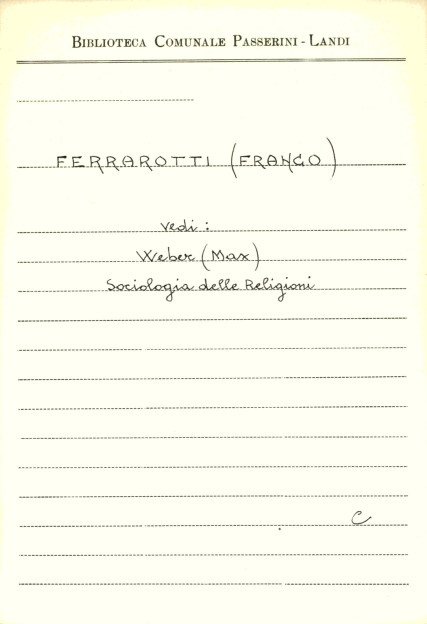 BIBLIOTECA COMUNALE PASSERINI - LANDI
FERRAROTTI (FRANCO)
vedi :
Weber (Max)
Sociologia delle Religioni
C